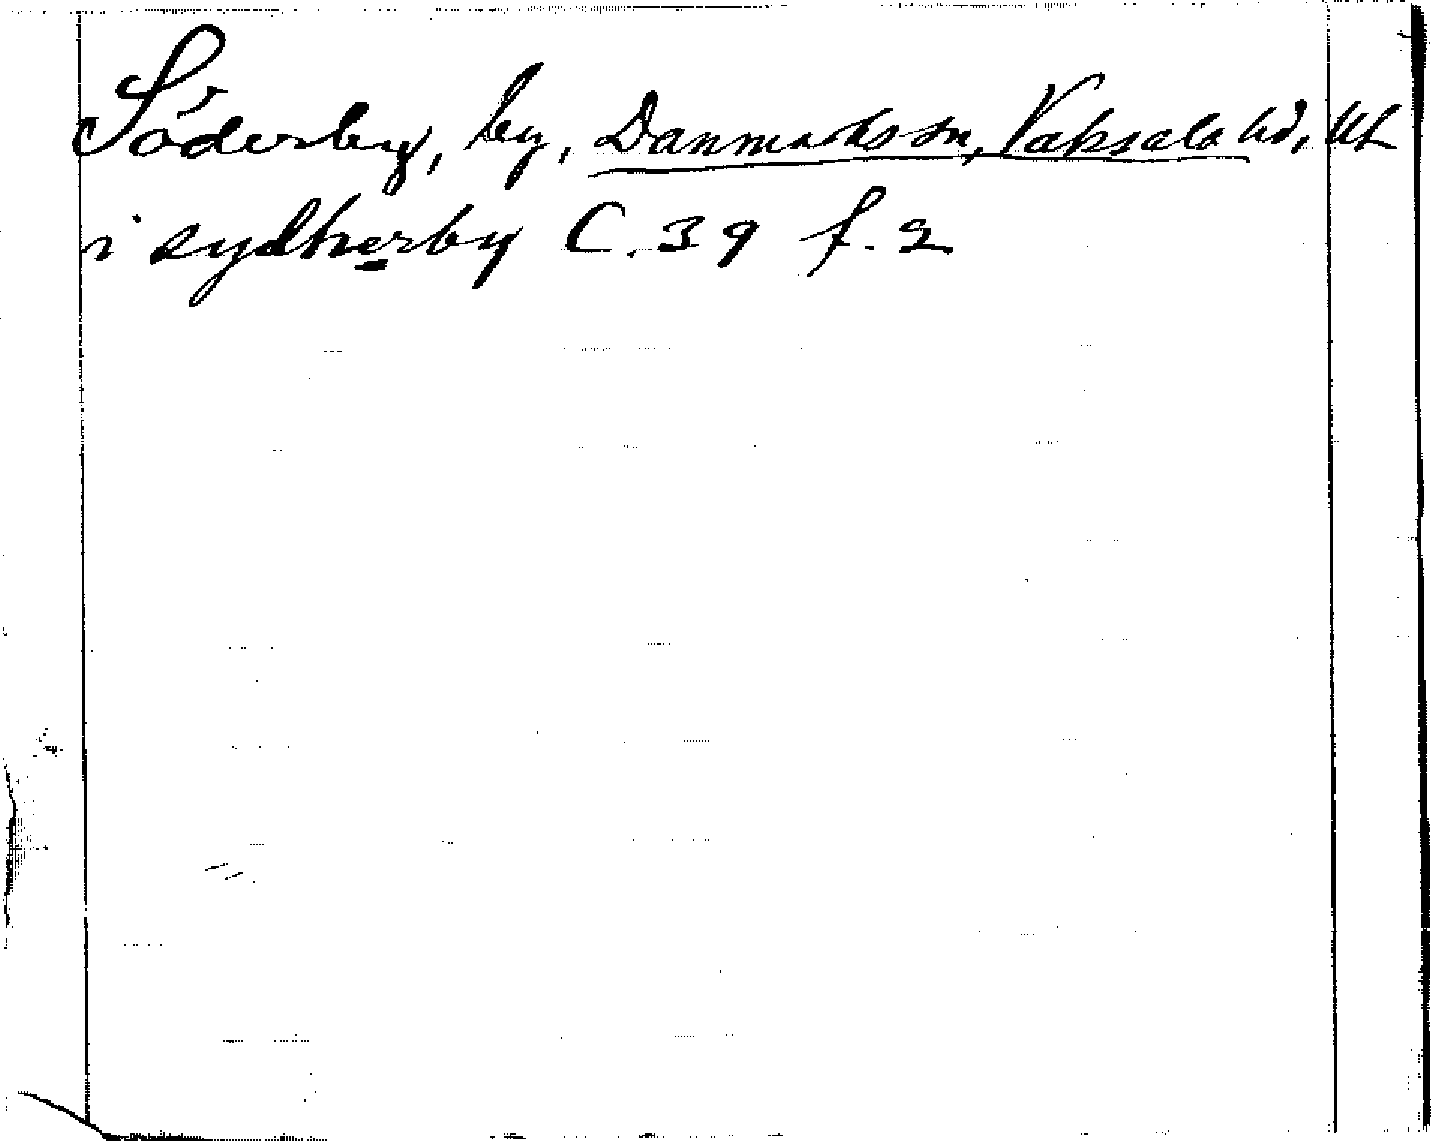 Söderby, by, Danmarks sn, Vaksala hd, Ul.
i sydherby C. 39 f. 2